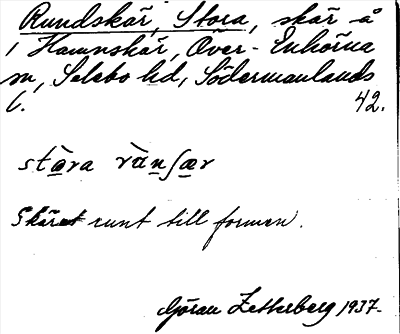 Rundskär, Stora, skär å
i Hamnskär, Över-Enhörna
sn, Selebo hd, Södermanlands
l. 42.
stæ̀ra rùnʃær
Skäret runt till formen.
Göran Zetterberg 1937